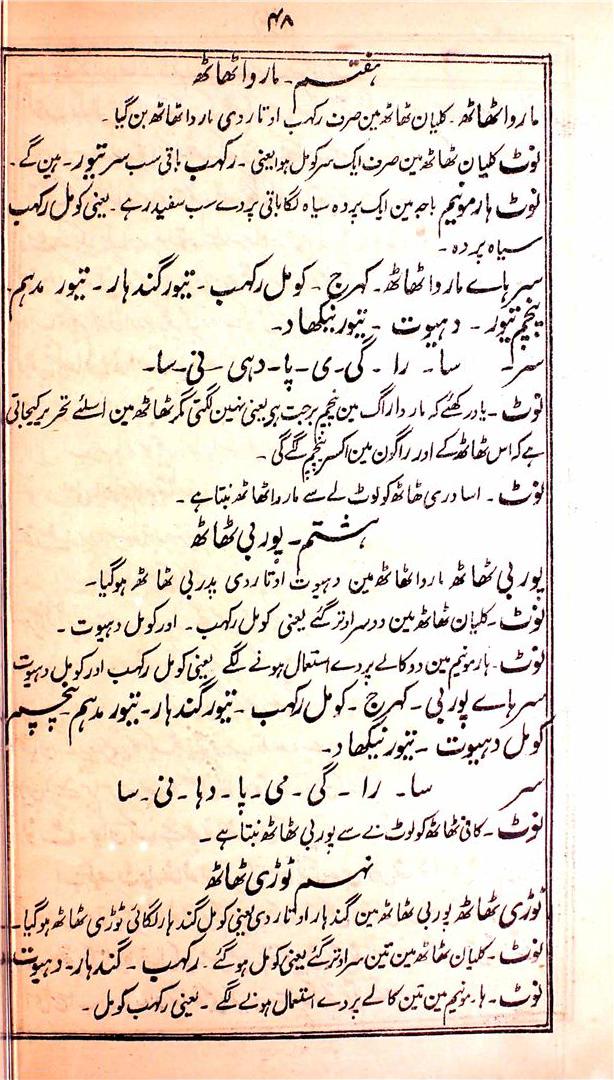 ۴۸
ہفتم ۔ ماروا ٹھاٹھ
ماروا ٹھاٹھ ۔ کلیان ٹھاٹھ مین صرف رکہب اوتار دی ماروا ٹھاٹھ بن گیا ۔
نوٹ کلیان ٹھاٹھ مین صرف ایک سر کومل ہوا یعنی ۔ رکہب باقی سب سر تیور ۔ ہین گے ۔
نوٹ ہارمونیم باجہ مین ایک پردہ سیاہ لگا باقی پردے سب سفید رہے ۔ یعنی کومل رکہب
سیاہ پردہ ۔
سرہاے ماروا ٹھاٹھ ۔ کہرج ۔ کومل رکہب ۔ تیور گندہار ۔ تیور مدہم ۔
پنچم تیور ۔ دہیوت ۔ تیور نیکھاد ۔
سر ۔ سا ۔ را ۔ گی ۔ ی ۔ پا ۔ دہی ۔ نی ۔ سا ۔
نوٹ ۔ یاد رکھئے کہ ماروا راگ مین پنچم برجت ہی یعنی نہین لگتی مگر ٹھاٹھ مین اسلئے تحریر کیجاتی
ہے کہ اس ٹھاٹھ کے اور راگون مین اکسر پنچم لگے گی ۔
نوٹ ۔ اساوری ٹھاٹھ کو لوٹ لے سے ماروا ٹھاٹھ بنتا ہے ۔
ہشتم ۔ پوربی ٹھاٹھ
پوربی ٹھاٹھ ماروا ٹھاٹھ مین دہیوت اوتار دی پوربی ٹھاٹھ ہوگیا ۔
نوٹ ۔ کلیان ٹھاٹھ مین دو سر اوتر گئے یعنی کومل رکہب ۔ اور کومل دہیوت ۔
نوٹ ۔ ہارمونیم مین دو کالے پردے استعمال ہونے لگے یعنی کومل رکہب اور کومل دہیوت
سرہاے پوربی ۔ کہرج ۔ کومل رکہب ۔ تیور گندہار ۔ تیور مدہم ۔ پنچم
کومل دہیوت ۔ تیور نیکھاد ۔
سر سا ۔ را ۔ گی ۔ می ۔ پا ۔ دہا ۔ نی ۔ سا
نوٹ ۔ کافی ٹھاٹھ کو لوٹ نے سے پوربی ٹھاٹھ بنتا ہے ۔
نہم ٹوڑی ٹھاٹھ
ٹوڑی ٹھاٹھ پوربی ٹھاٹھ مین گندہار اوتار دی یعنی کومل گندہار لگائی ٹوڑی ٹھاٹھ ہوگیا ۔
نوٹ ۔ کلیان ٹھاٹھ مین تین سر اوتر گئے یعنی کومل ہو گئے ۔ رکہب ۔ گندہار ۔ دہیوت
نوٹ ۔ ہارمونیم مین تین کالے پردے استعمال ہونے لگے ۔ یعنی رکہب کومل ۔